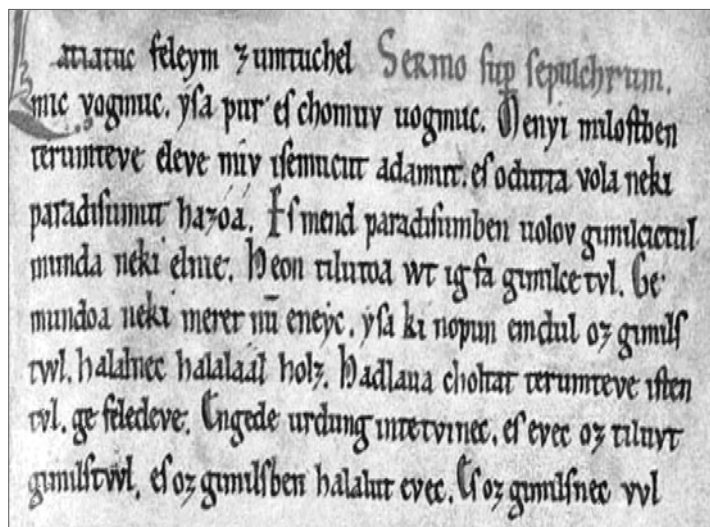 Latiatuc feleym ʒumtuchel Sermo sup̱ ſepulchrum.
mic vogmuc. yſa pur eſ chomuv uogmuc. Menyi miloſtben
terumteve eleve miv iſemucut adamut. eſ odutta vola neki
paradiſumut haʒóá. Eſ mend paradiſumben uolov gimilcictul
munda neki elnie. Heon tilutoa wt ig fa gimilce tvl. Ge
mundoa neki meret nū eneyc. yſa ki nopun emdul oʒ gimilſ
twl. halalnec halaláál holʒ. Hadlaua choltat terumteve iſten
tvl. ge feledeve. Engede urdung intetvinec. eſ evec oʒ tiluvt
gimilſtwl. eſ oʒ gimilſben halalut evec. Eſ oʒ gimilſnec vvl